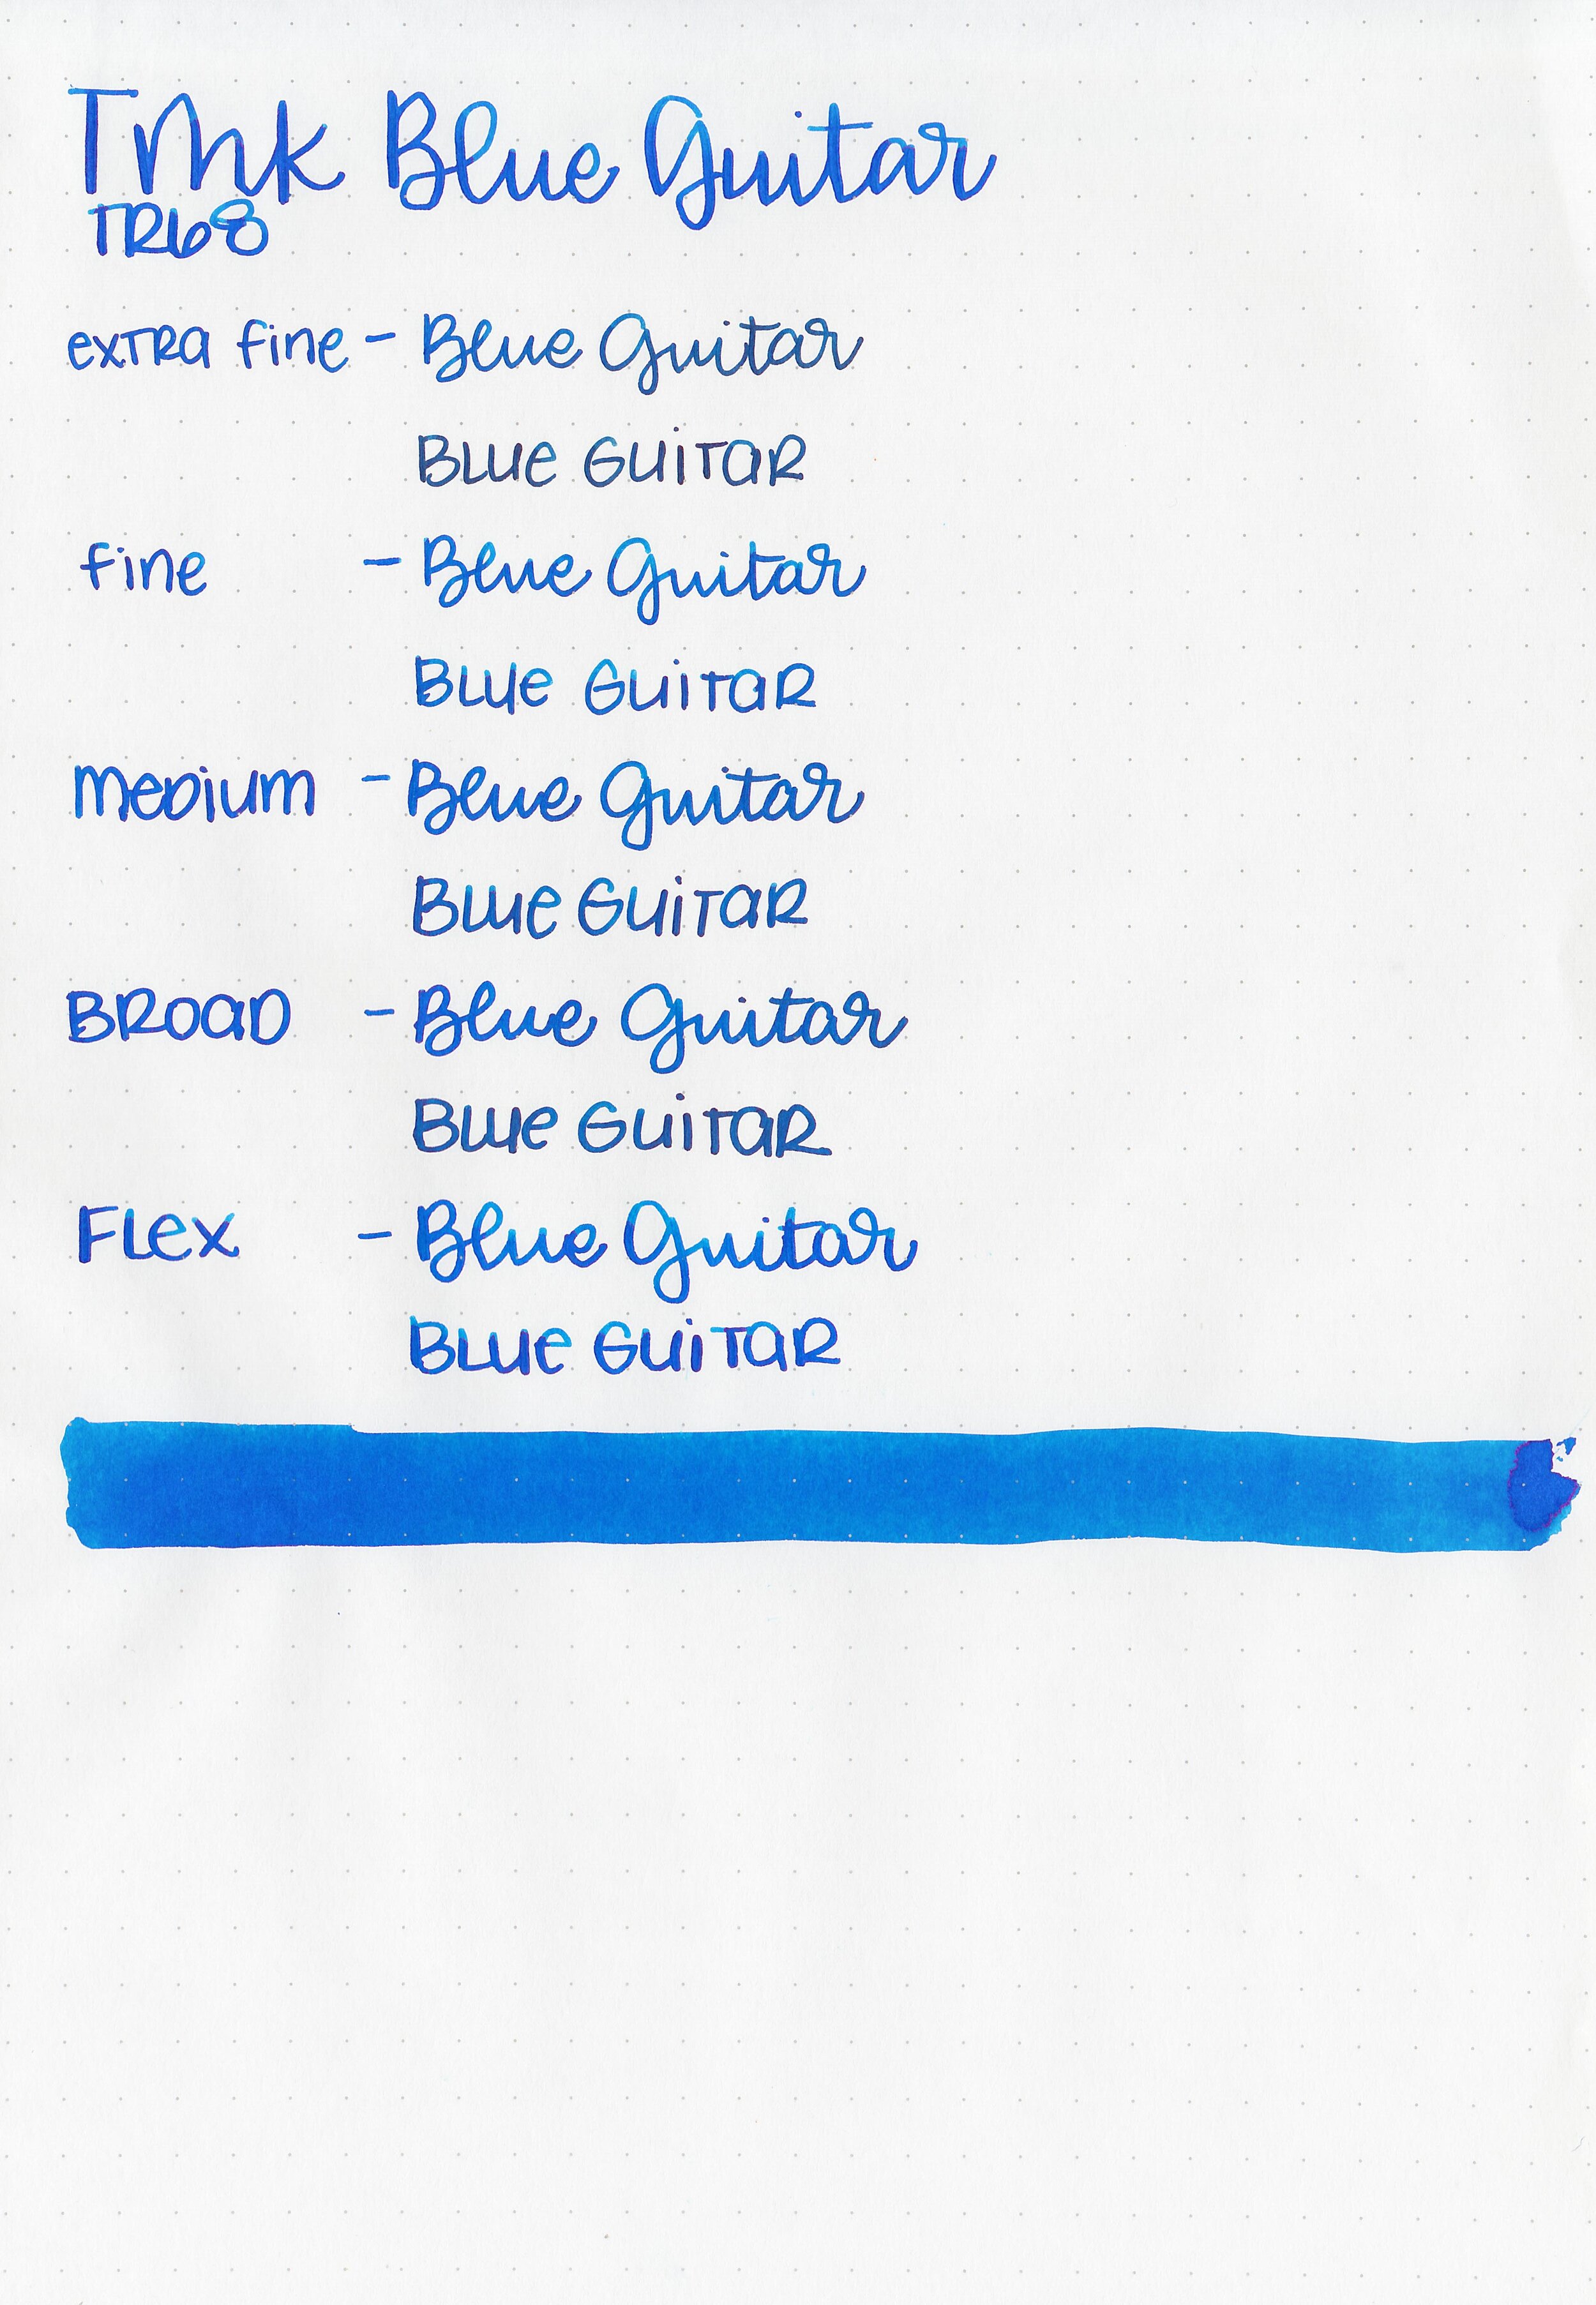 TmK Blue Guitar
TR68
exTRa fine - Blue Guitar
BLue GuiTaR
fine - Blue Guitar
BLue GuiTaR
meDium - Blue Guitar
BLue GuiTaR
BRoaD - Blue Guitar
BLue GuiTaR
FLex - Blue Guitar
BLue GuiTaR